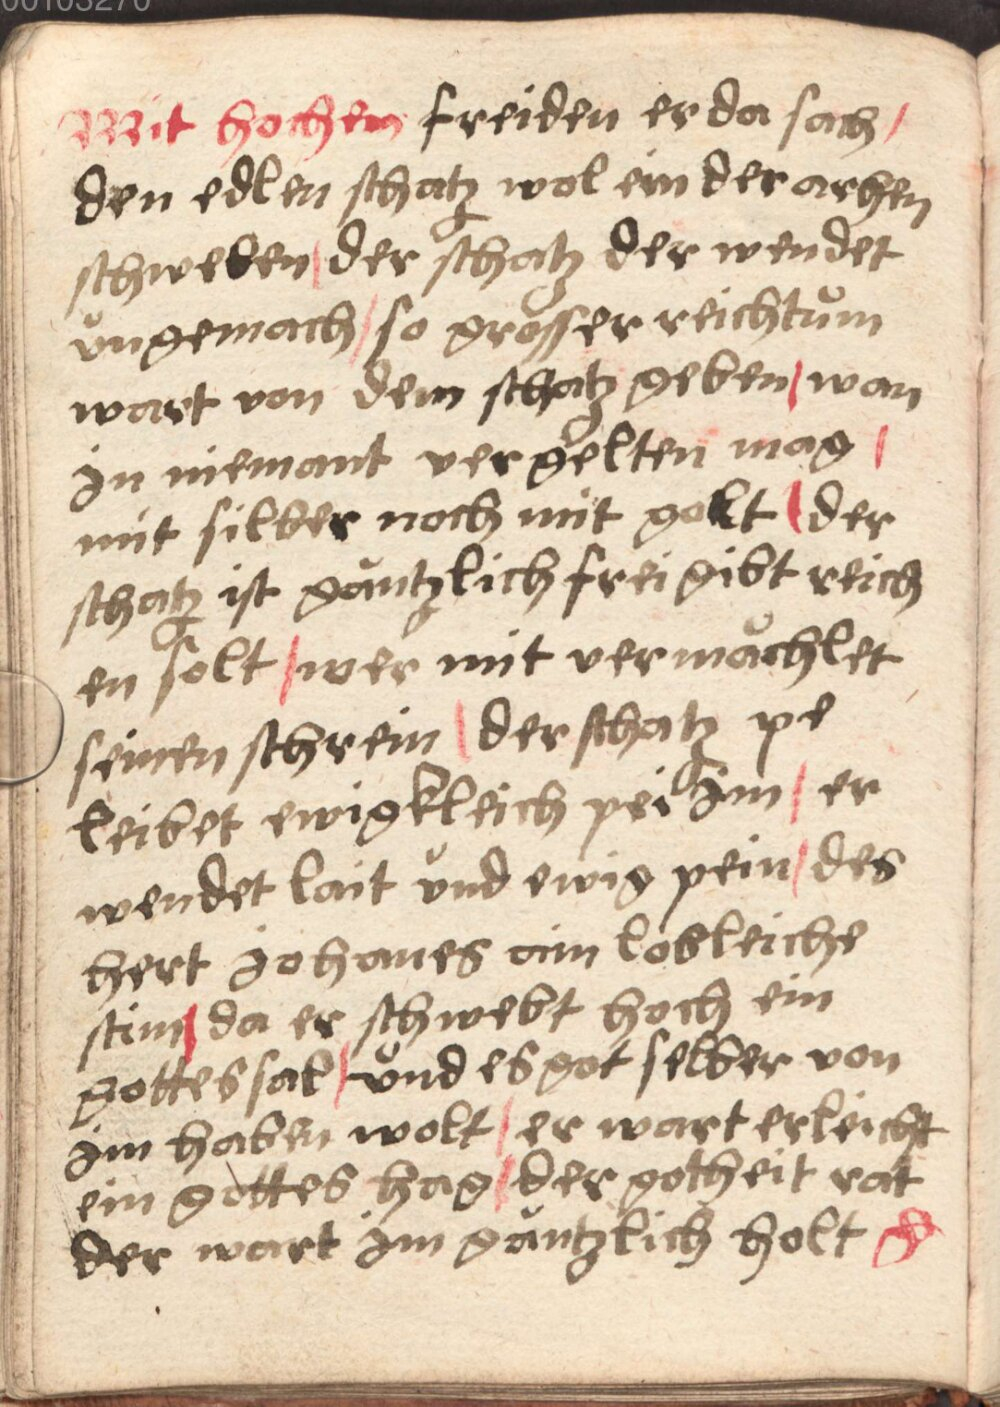 00103270
Mit hochen freiden er da sach /
den edlen schatz wol ein der arhen
schweben / der schatz der wendet
ůngemach / so grosser reichtům
wart von dem schatz geben / wan
in niemant vergelten mag /
mit silber noch mit golt / der
schatz ist gäntzlich frei gibt reich
en solt / wer mit vermächlet
seinen schrein / der schatz pe
leibet ewigkleich pei im / er
wendet lait ůnd ewig pein / des
hert iohanes ain lobleiche
stim / da er schwebt hoch ein
gottes sal / ůnd es got selber von
im haben wolt / er wart erleicht
ein gottes hag / der gotheit rat
der wart im gäntzlich holt